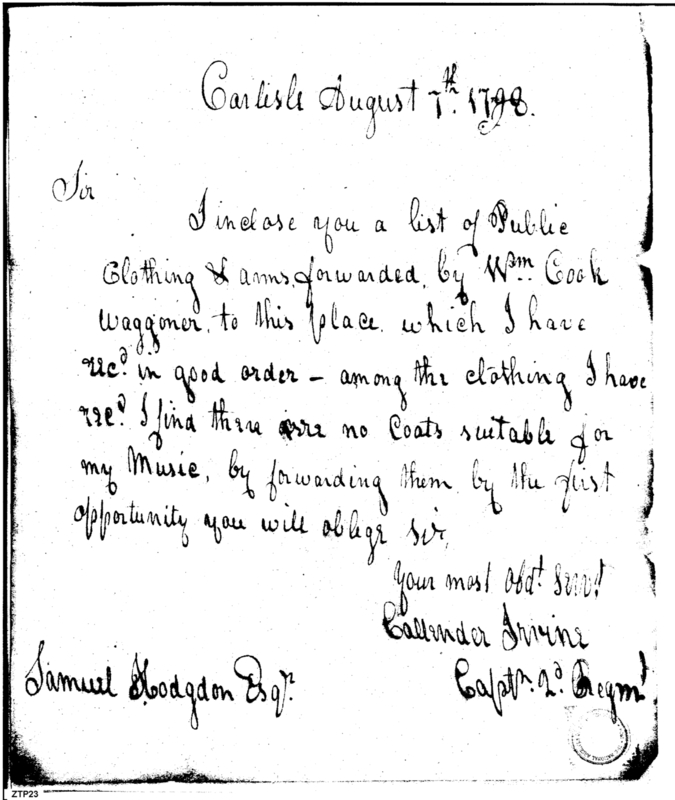 Carlisle August 7th. 1798.
Sir
I inclose you a list of Public
Clothing & arms, forwarded, by Wm. Cook
Waggoner, to this place, which I have
recd. in good order – among the clothing I have
recd. I find there are no Coats suitable for
my Music, by forwarding them by the first
opportunity you will oblige Sir,
Your most Obdt. Servt
Callender Irvine
Samuel Hodgdon Esqr.
Captn. 2d. Regmt
ZTP23